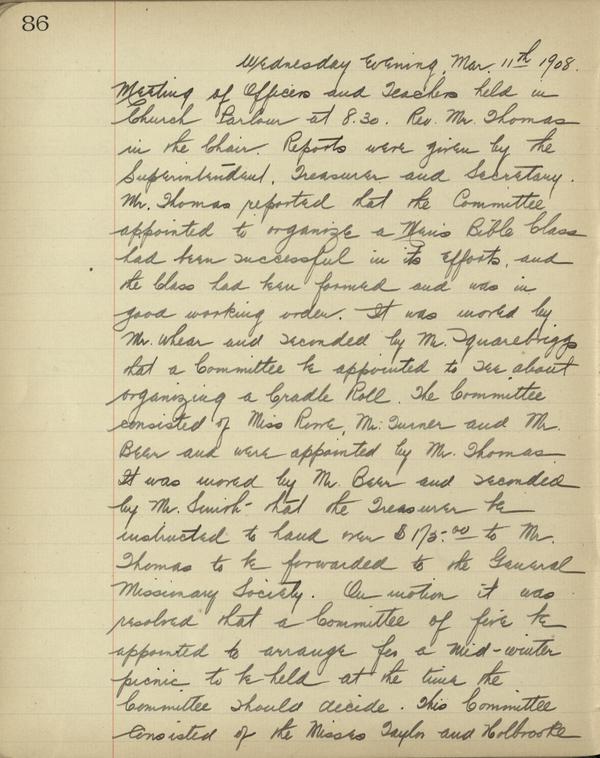 86
Wednesday Evening, Mar. 11th 1908.
Meeting of Officers and Teachers held in
Church Parlour at 8.30. Rev. Mr. Thomas
in the Chair. Reports were given by the
Superintendent, Treasurer and Secretary.
Mr. Thomas reported that the Committee
appointed to organize a Men's Bible Class
had been successful in its efforts, and
the Class had been formed and was in
good working order. It was moved by
Mr. Whear and seconded by Mr. Squarebriggs
that a Committee be appointed to see about
organizing a Cradle Roll. The Committee
consisted of Miss Rowe, Mr. Turner and Mr.
Beer and were appointed by Mr. Thomas.
It was moved by Mr. Beer and seconded
by Mr. Smith that the Treasurer be
instructed to hand over $175.00 to Mr.
Thomas to be forwarded to the General
Missionary Society. On motion it was
resolved that a Committee of five be
appointed to arrange for a mid-winter
picnic to be held at the time the
Committee should decide. This Committee
consisted of the Misses Taylor and Holbrooke